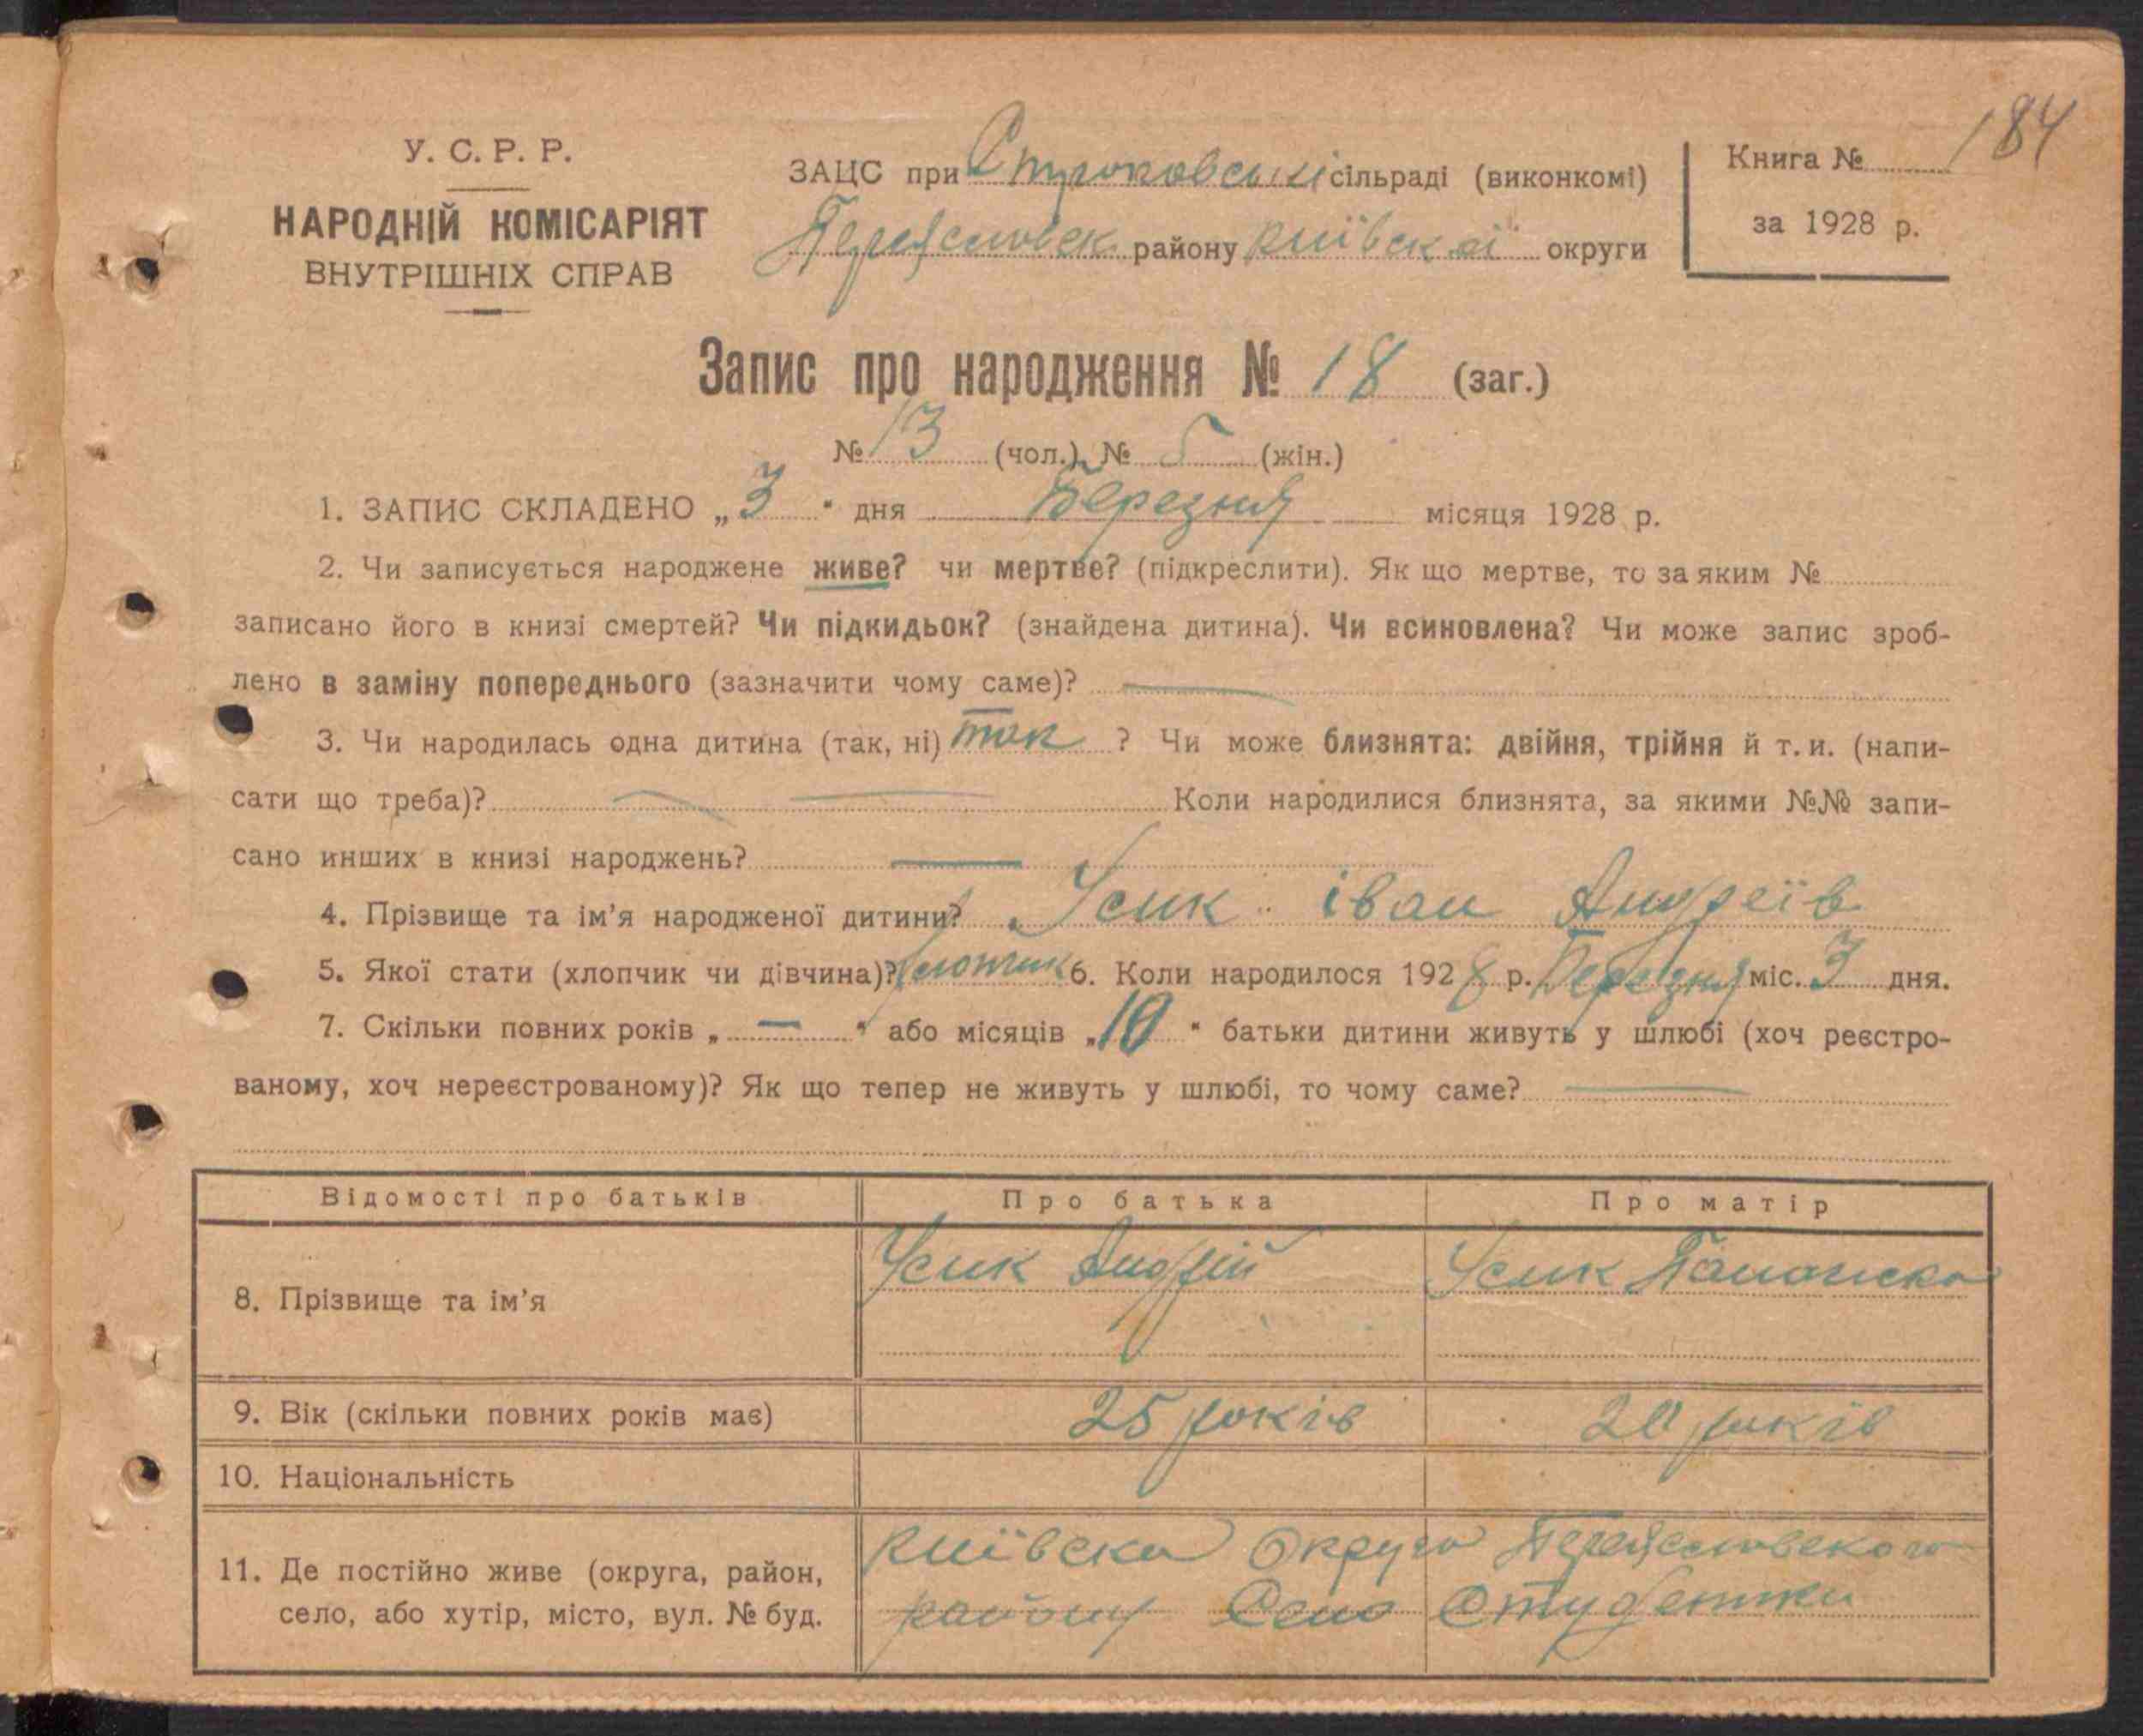 184
У. С. Р. Р.
НАРОДНІЙ КОМІСАРІЯТ
ВНУТРІШНІХ СПРАВ
ЗАЦС при сільраді (виконкомі)
Переяславск району Київскої округи
Книга №
за 1928 р.
Запис про народження № 18 (заг.)
№ 13 (чол.), № 5 (жін.)
1. ЗАПИС СКЛАДЕНО „3" дня Березня місяця 1928 р.
2. Чи записується народжене живе? чи мертве? (підкреслити). Як що мертве, то за яким №
записано його в книзі смертей? Чи підкидьок? (знайдена дитина). Чи всиновлена? Чи може запис зроб-
лено в заміну попереднього (зазначити чому саме)? —
3. Чи народилась одна дитина (так, ні) так ? Чи може близнята: двійня, трійня й т. и. (напи-
сати що треба)? — — Коли народилися близнята, за якими №№ запи-
сано инших в книзі народжень? —
4. Прізвище та ім'я народженої дитини? Усик іван Андреїв
5. Якої стати (хлопчик чи дівчина)? хлопчик 6. Коли народилося 1928 р. Березня міс. 3 дня.
7. Скільки повних років „—" або місяців „10" батьки дитини живуть у шлюбі (хоч реєстро-
ваному, хоч нереєстрованому)? Як що тепер не живуть у шлюбі, то чому саме? —
Відомості про батьків Про батька Про матір
8. Прізвище та ім'я Усик Андрій Усик
9. Вік (скільки повних років має) 25 років 20 років
10. Національність
11. Де постійно живе (округа, район,
село, або хутір, місто, вул. № буд.
Київска Округа Переяславского
району Село Студеники